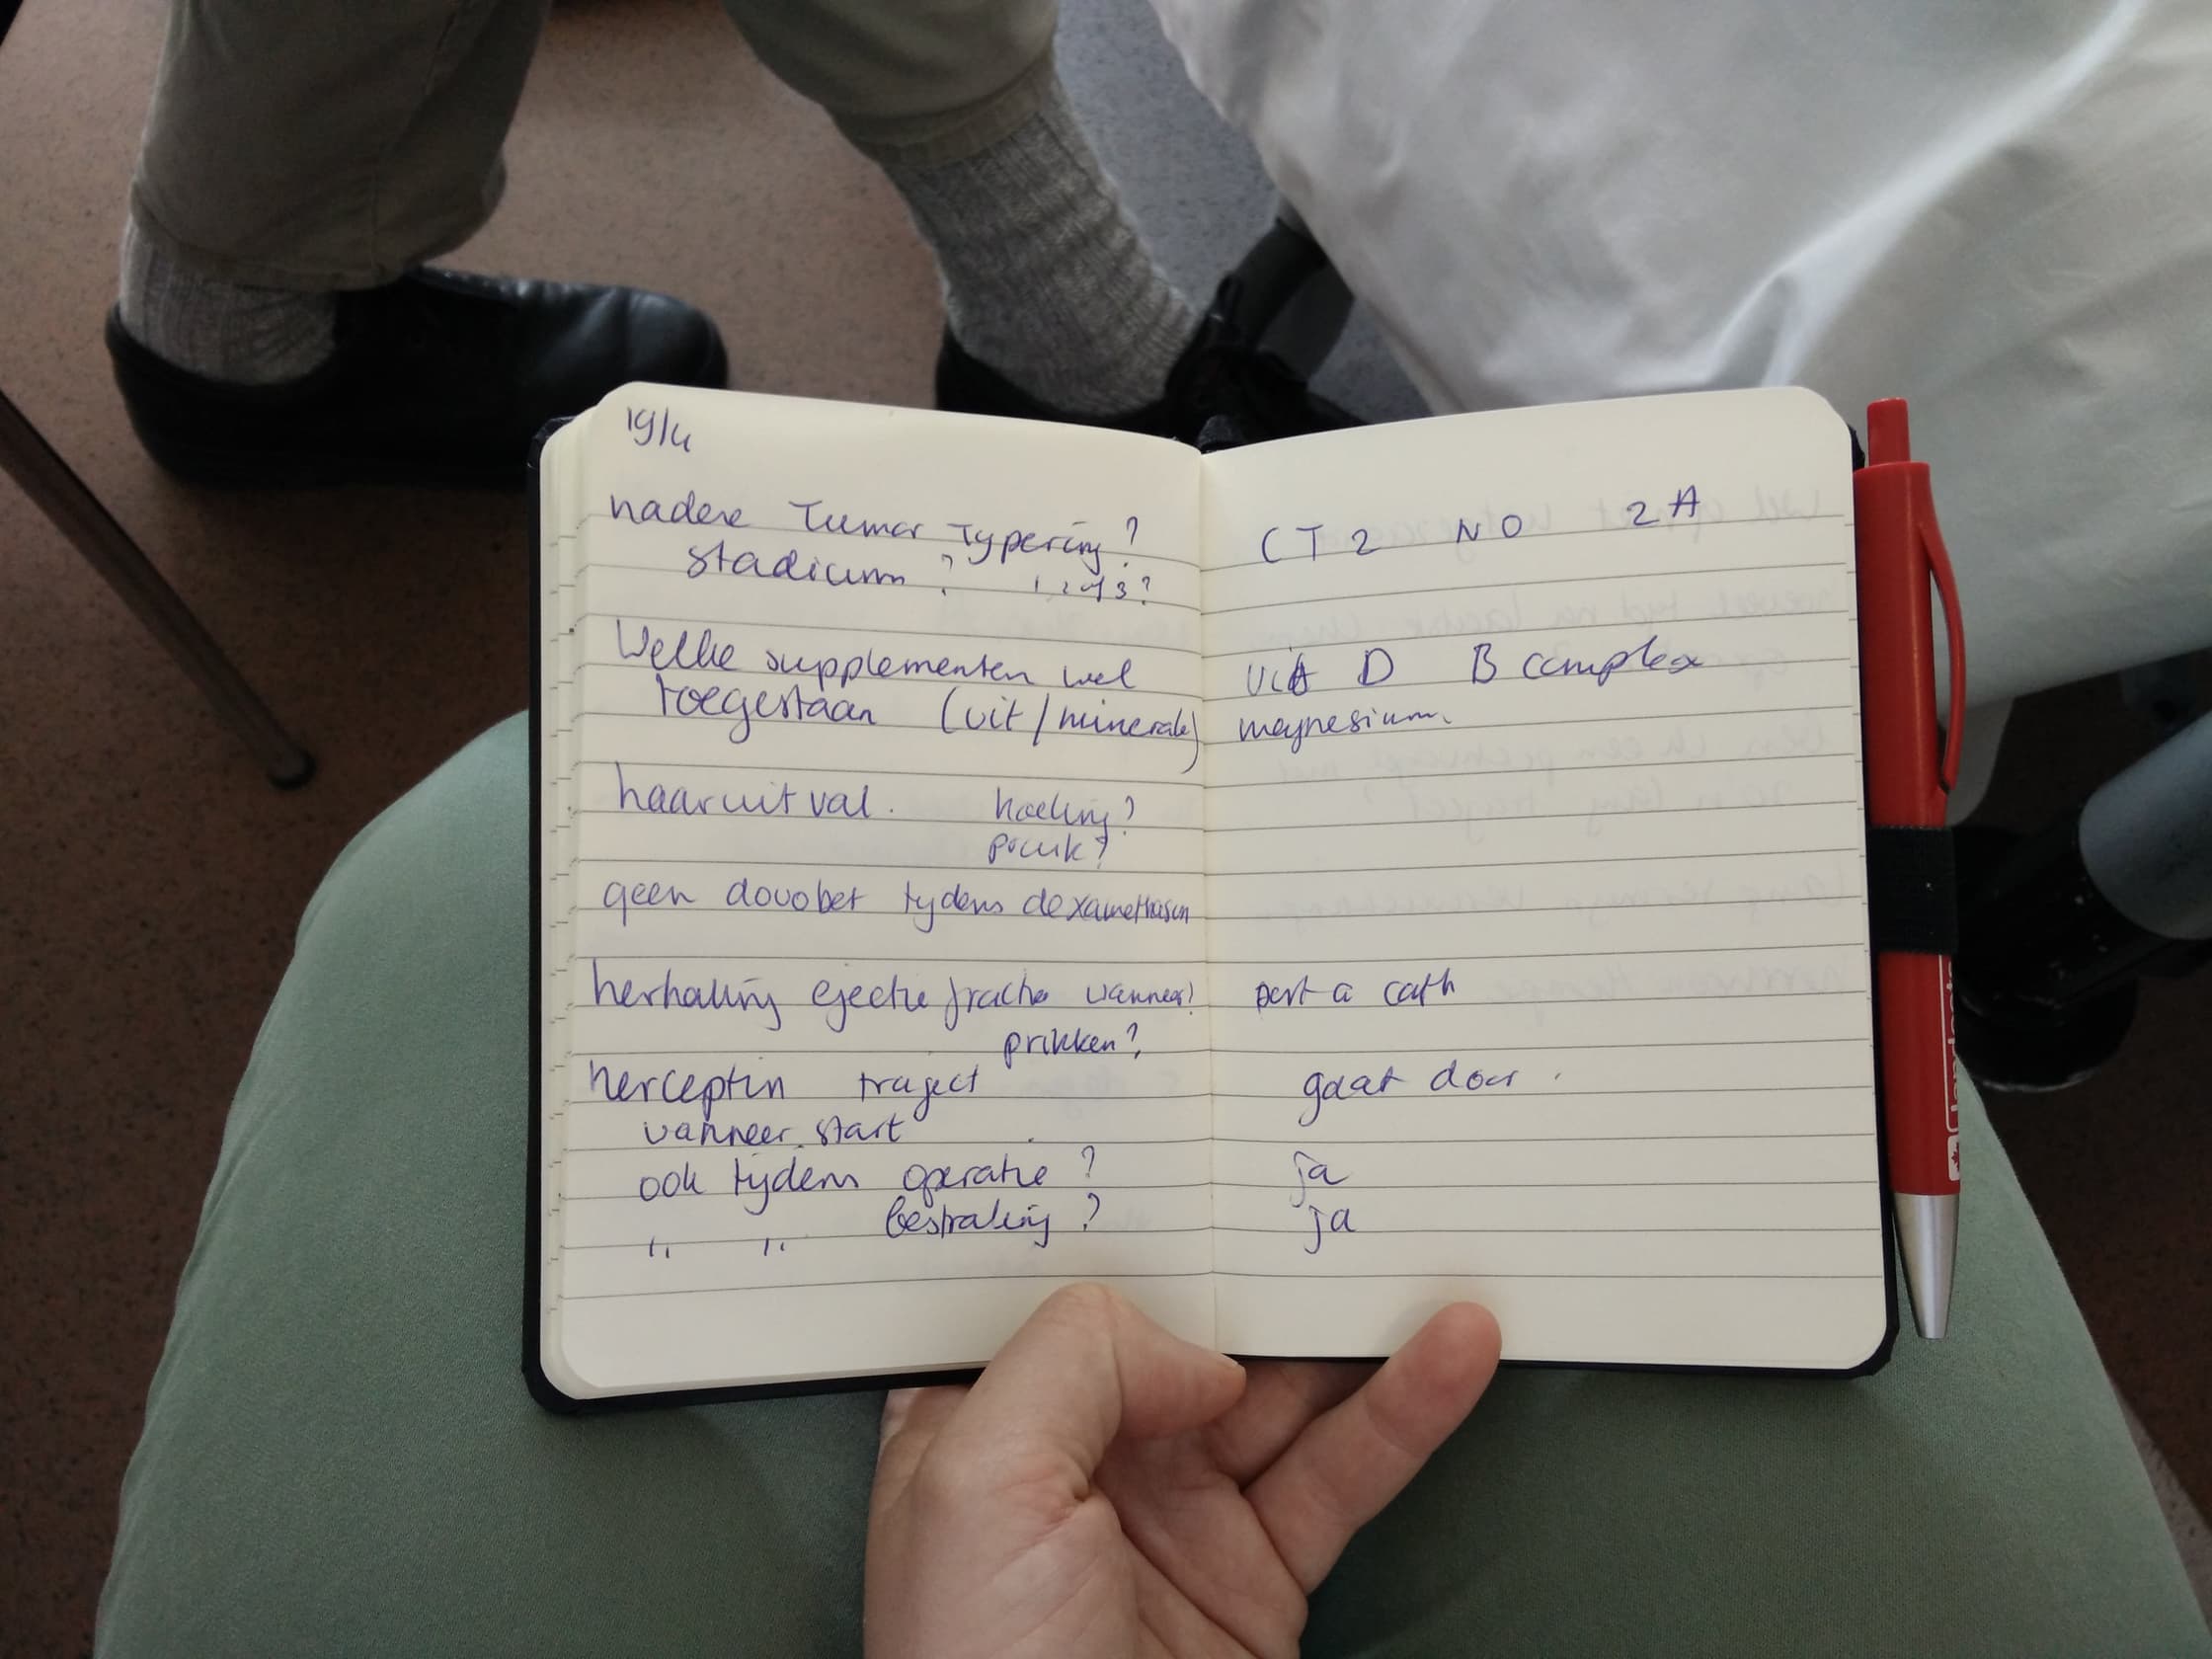 19/4
nadere Tumor Typering?
stadium ? 1 2 of 3?
Welke supplementen wel
toegestaan (vit/mineralen)
haaruitval. koeling?
pruik?
geen dovobet tydens dexamethason
herhaling ejectie fractie wanneer?
prikken?
herceptin traject
wanneer start
ook tijdens operatie ?
,, ,, bestraling ?
CT2 NO 2A
vit D B complex
magnesium.
port a cath
gaat door.
ja
ja